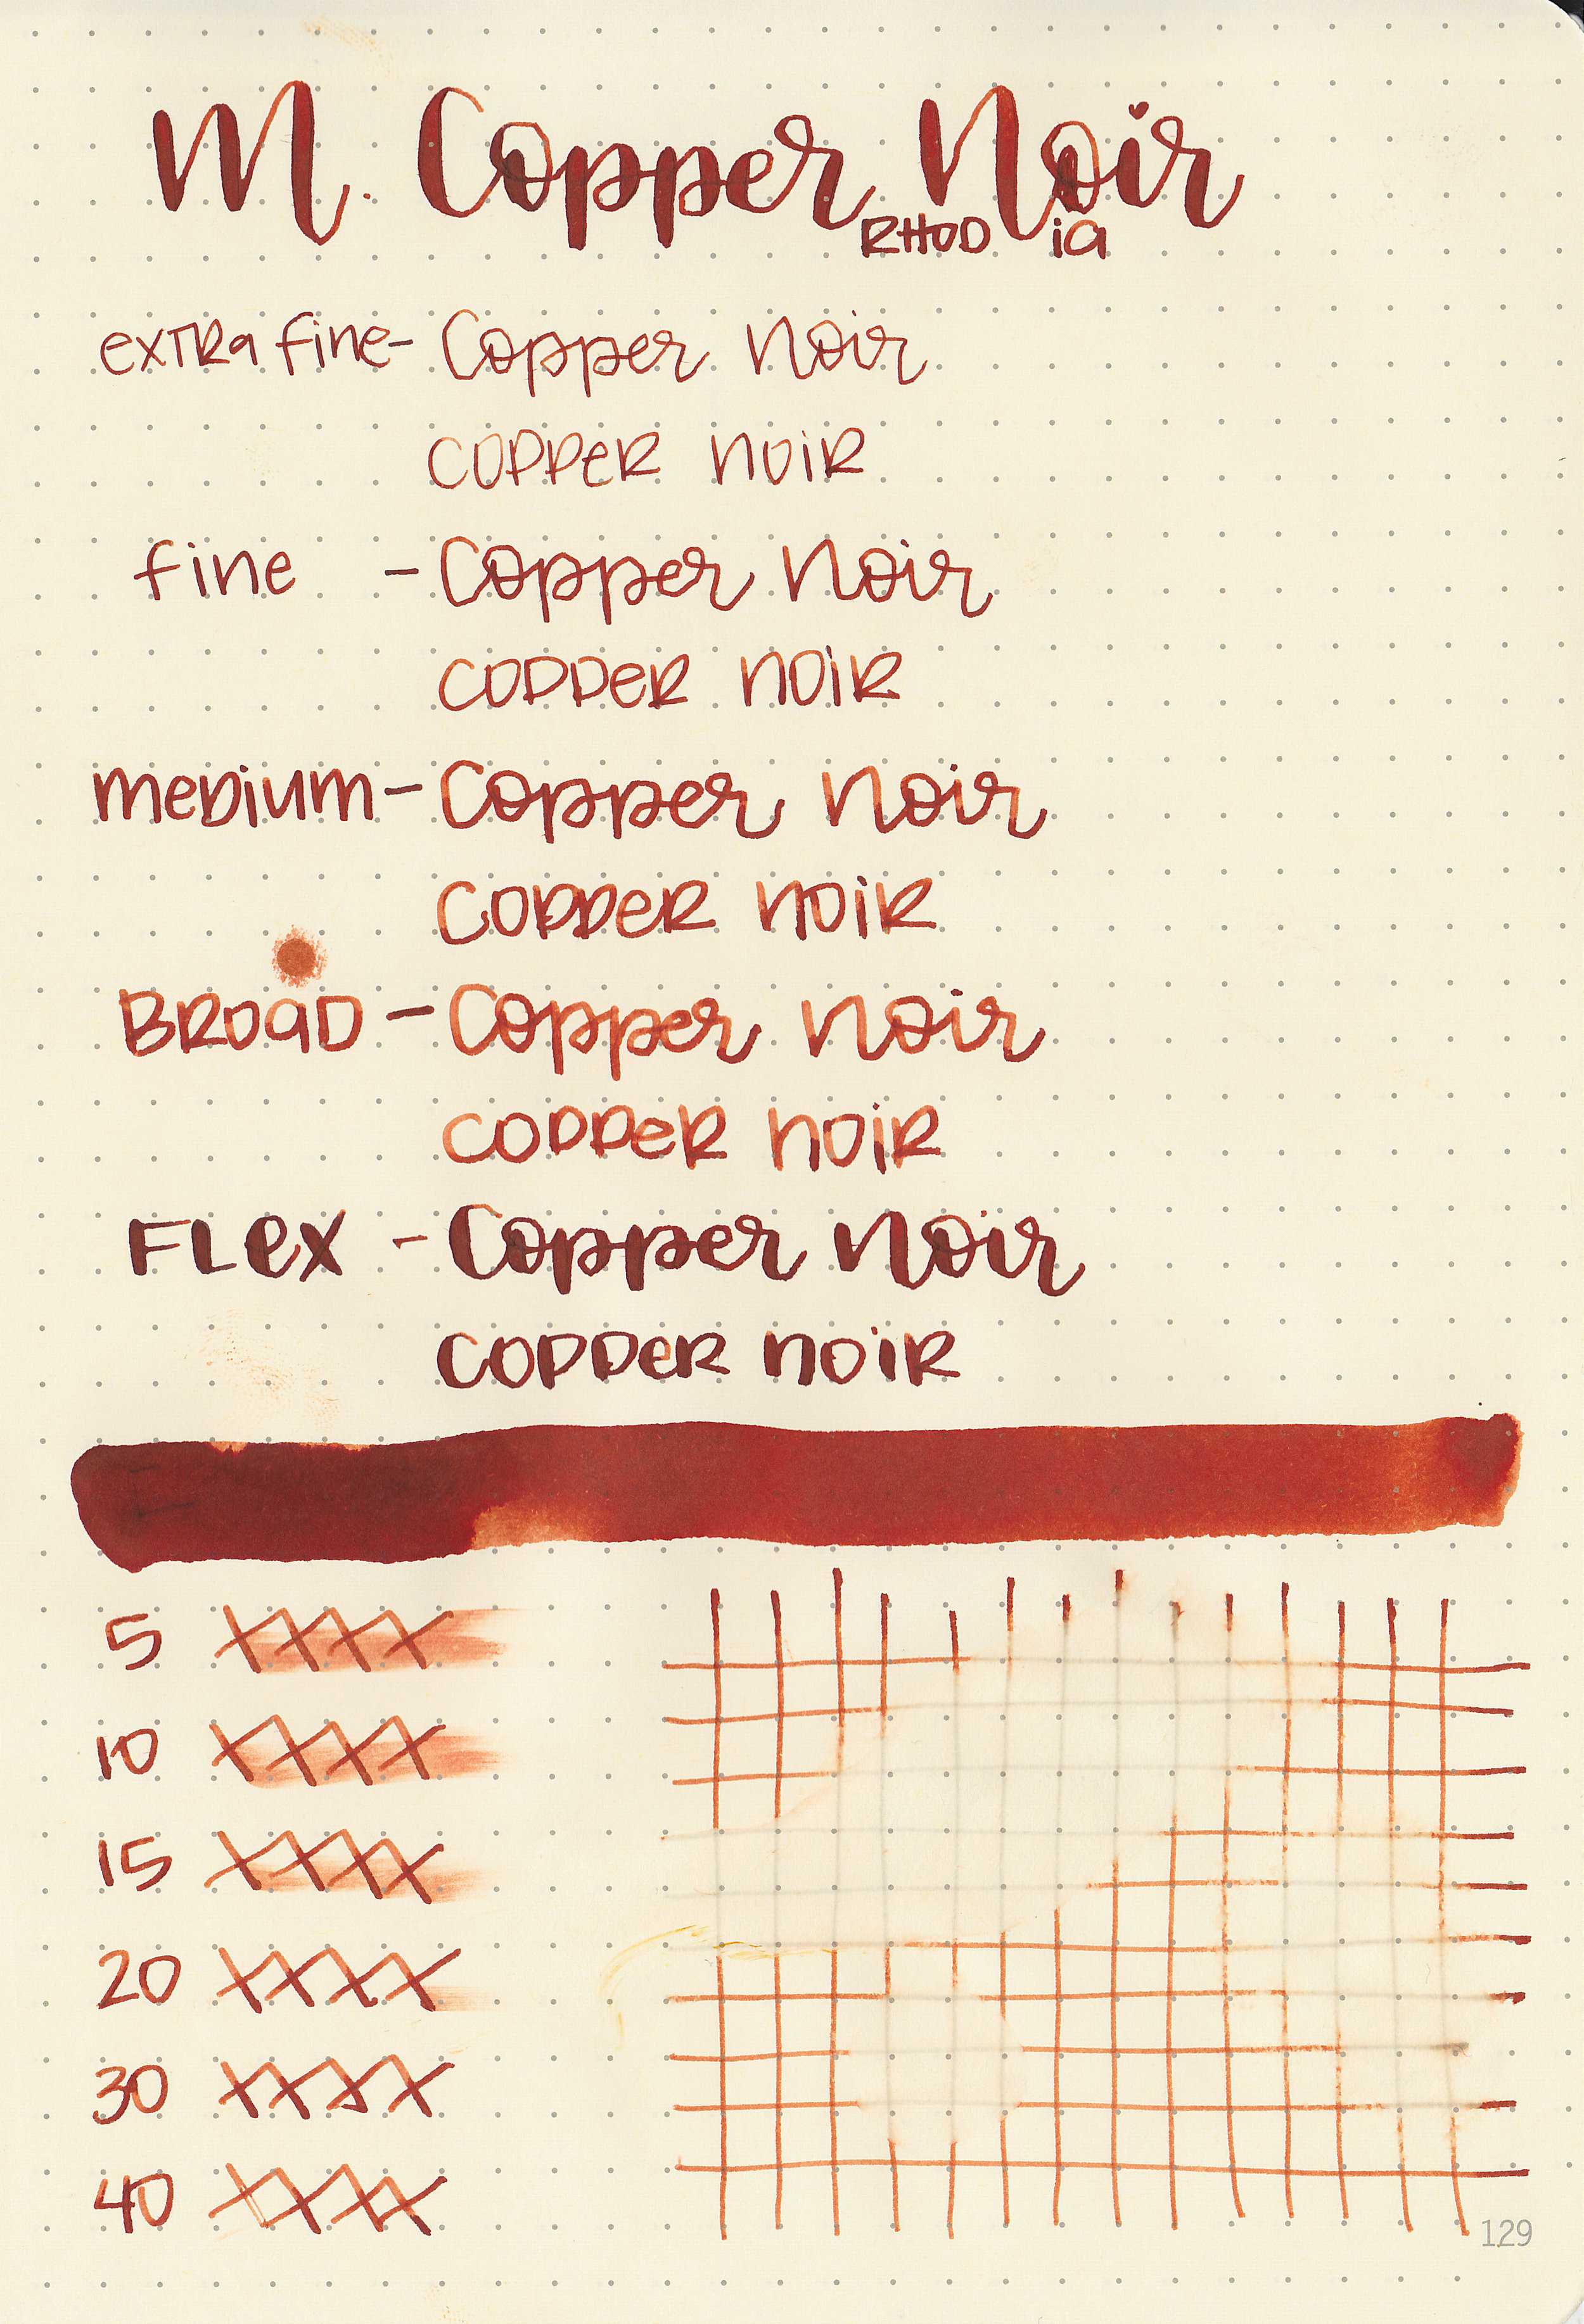 M. Copper Noir
RHODia
exTRa fine - Copper Noir
COPPeR NOiR
fine - Copper Noir
COPPeR NOiR
meDium - Copper Noir
COPPeR NOiR
BROaD - Copper Noir
COPPeR NOiR
FLex - Copper Noir
COPPeR NOiR
5 XXXX
10 XXXX
15 XXXX
20 XXXX
30 XXXX
40 XXXX
129